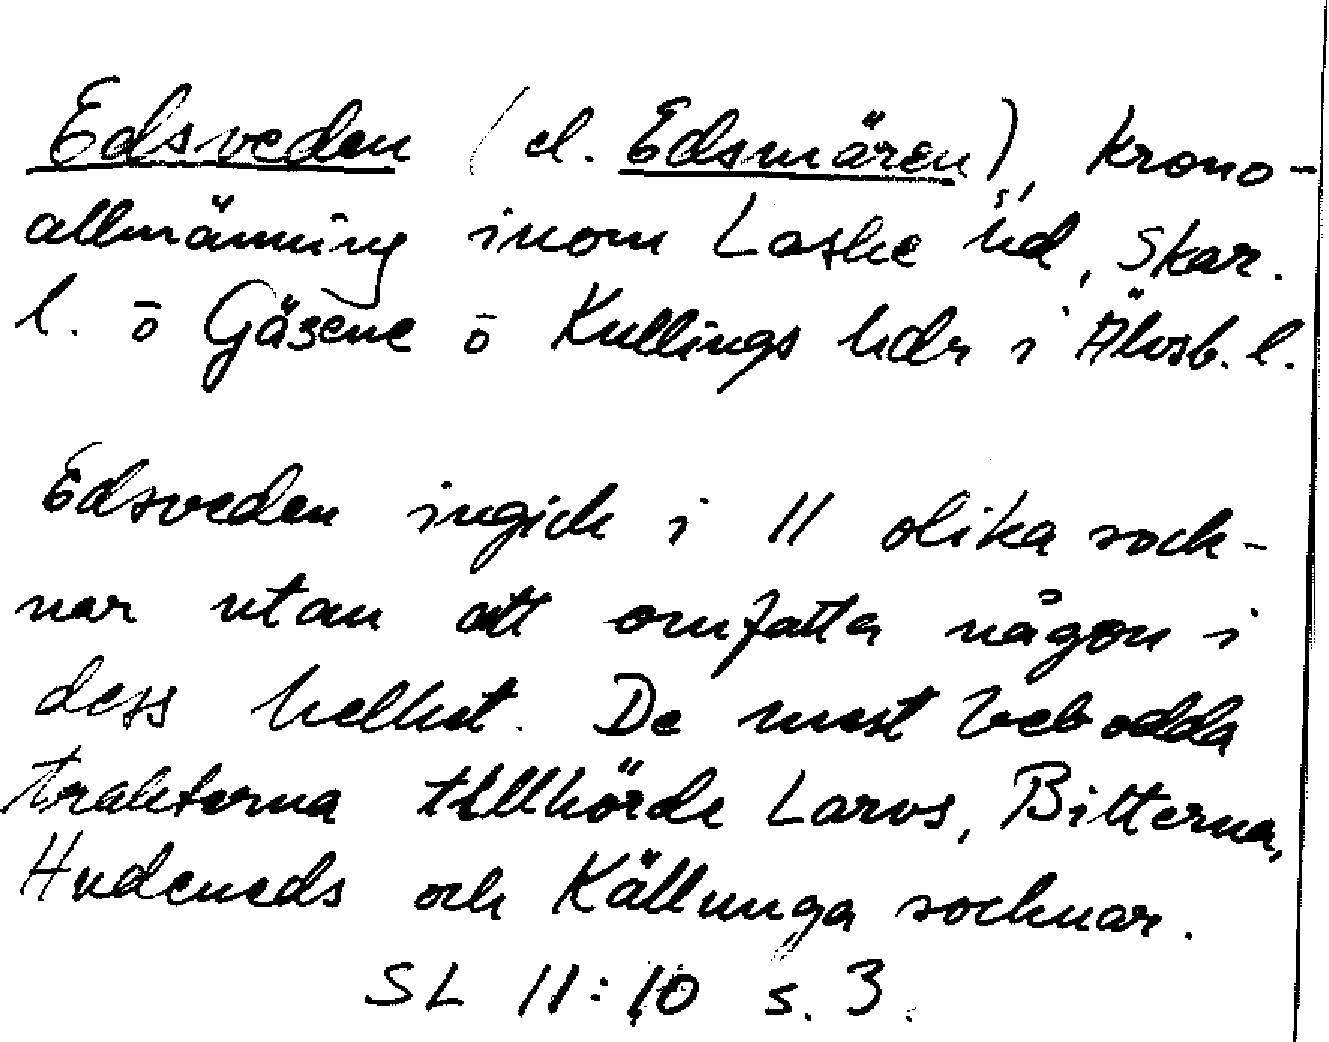 Edsveden (el. Edsmären), krono-
allmänning inom Laske hd, Skar.
l. o Gäsene o Kullings hdr i Älvsb. l.
Edsveden ingick i 11 olika sock-
nar utan att omfatta någon i
dess helhet. De mest bebodda
trakterna tillhörde Larvs, Bitterna,
Hudeneds och Källunga socknar.
SL 11:10 s. 3.